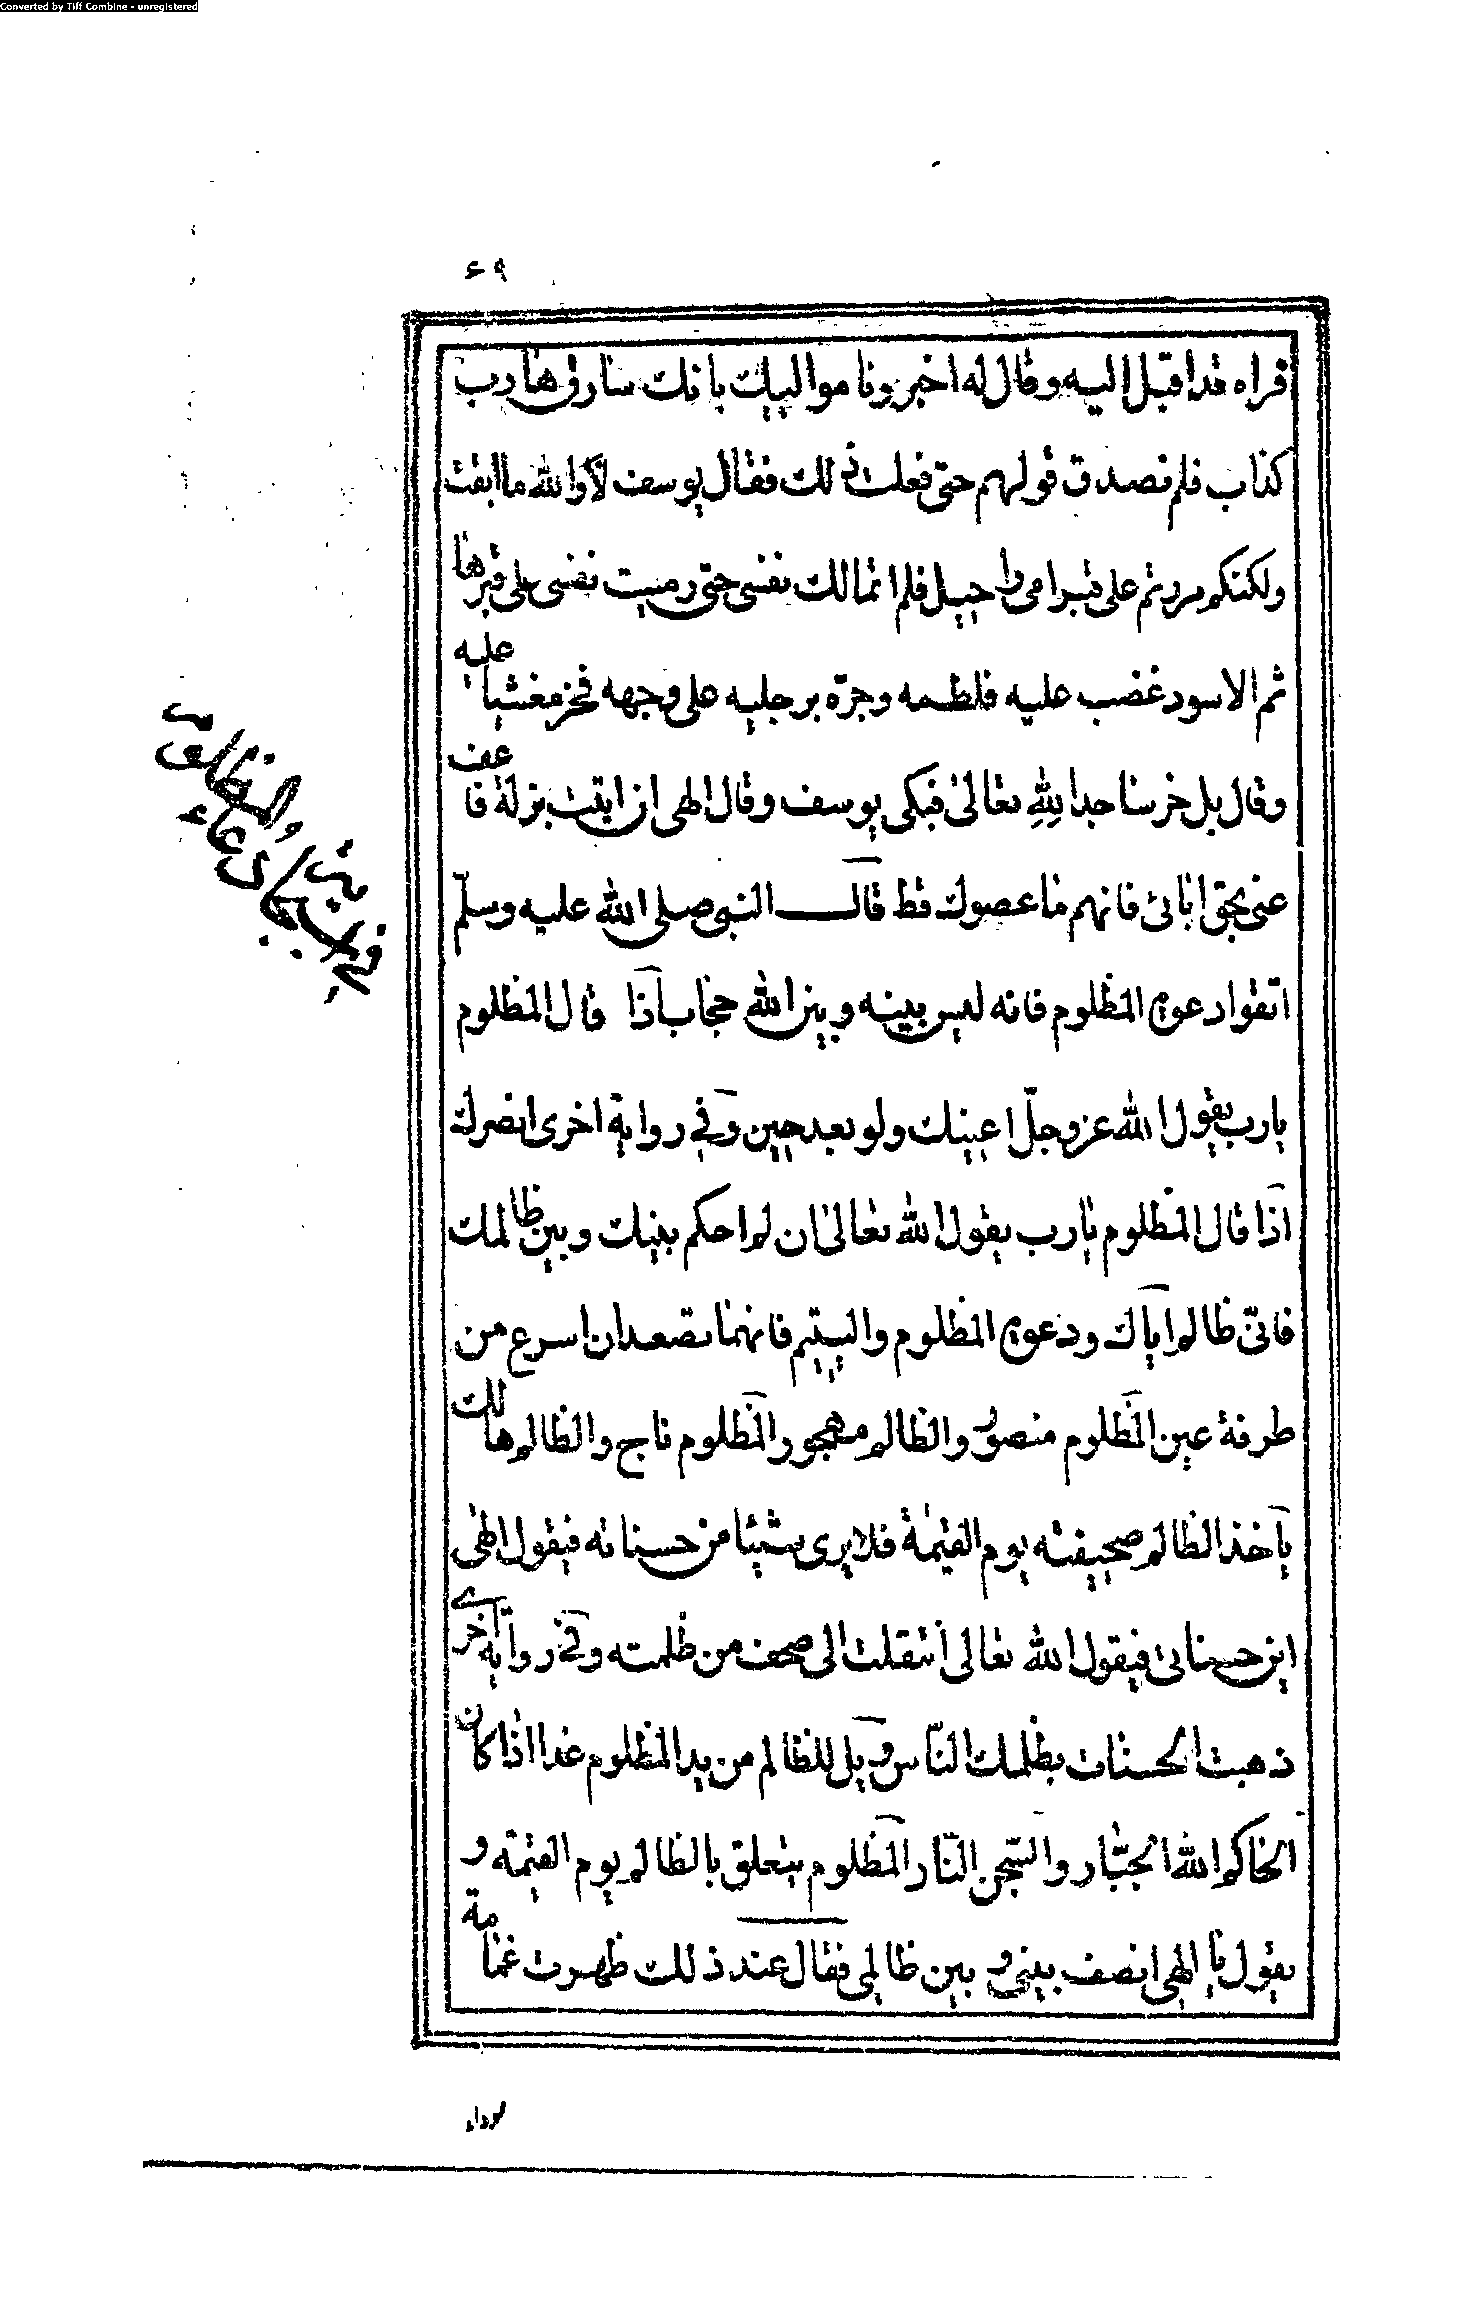 Converted by Tiff Combine - unregistered
٤٩
فراه قد اقبل اليه وقال له اخبرونا مواليك بانك سارق هارب
كذاب فلم نصدق قولهم حتى فعلت ذلك فقال يوسف لا والله ما ابقت
ولكنكم مررتم على قبر امى راحيل فلم اتمالك نفسى حتى رميت نفسى على قبرها
ثم الاسود غضب عليه فلطمه وجرّه برجليه على وجهه فخر مغشيا عليه
وقال بل خر ساجدا لِلّٰهِ تعالىٰ فبكى يوسف وقال الهى ان ابقت بزلة فاعف
عنى بحق ابائى فانهم ما عصوك قط قال النبى صلى الله عليه وسلّم
اتقوا دعوة المظلوم فانه ليس بينه وبين الله حجاب اذا قال المظلوم
يارب يقول الله عز وجلّ اعينك ولو بعد حين وفى رواية اخرى انصرك
اذا قال المظلوم يارب يقول الله تعالىٰ ان لم احكم بينك وبين ظالمك
فانىّ ظالم اياك ودعوة المظلوم واليتيم فانهما تصعدان اسرع من
طرفة عين المظلوم منصور والظالم مهجور المظلوم ناج والظالم هالك
ياخذ الظالم صحيفته يوم القيٰمة فلا يرى شيئا من حسناته فيقول الٰهى
اين حسناتى فيقول الله تعالى انتقلت الى صحف من ظلمته وفى رواية اخرى
ذهبت الحسنات بظلمك النّاس ويل للظالم من يد المظلوم غدا اذا كان
الحاكم الله الجبّار والسّجن النّار المظلوم يتعلق بالظالم يوم القيٰمة و
يقول يا الهى انصف بينى و بين ظالمى فقال عند ذلك ظهرت غمامة
سوداء